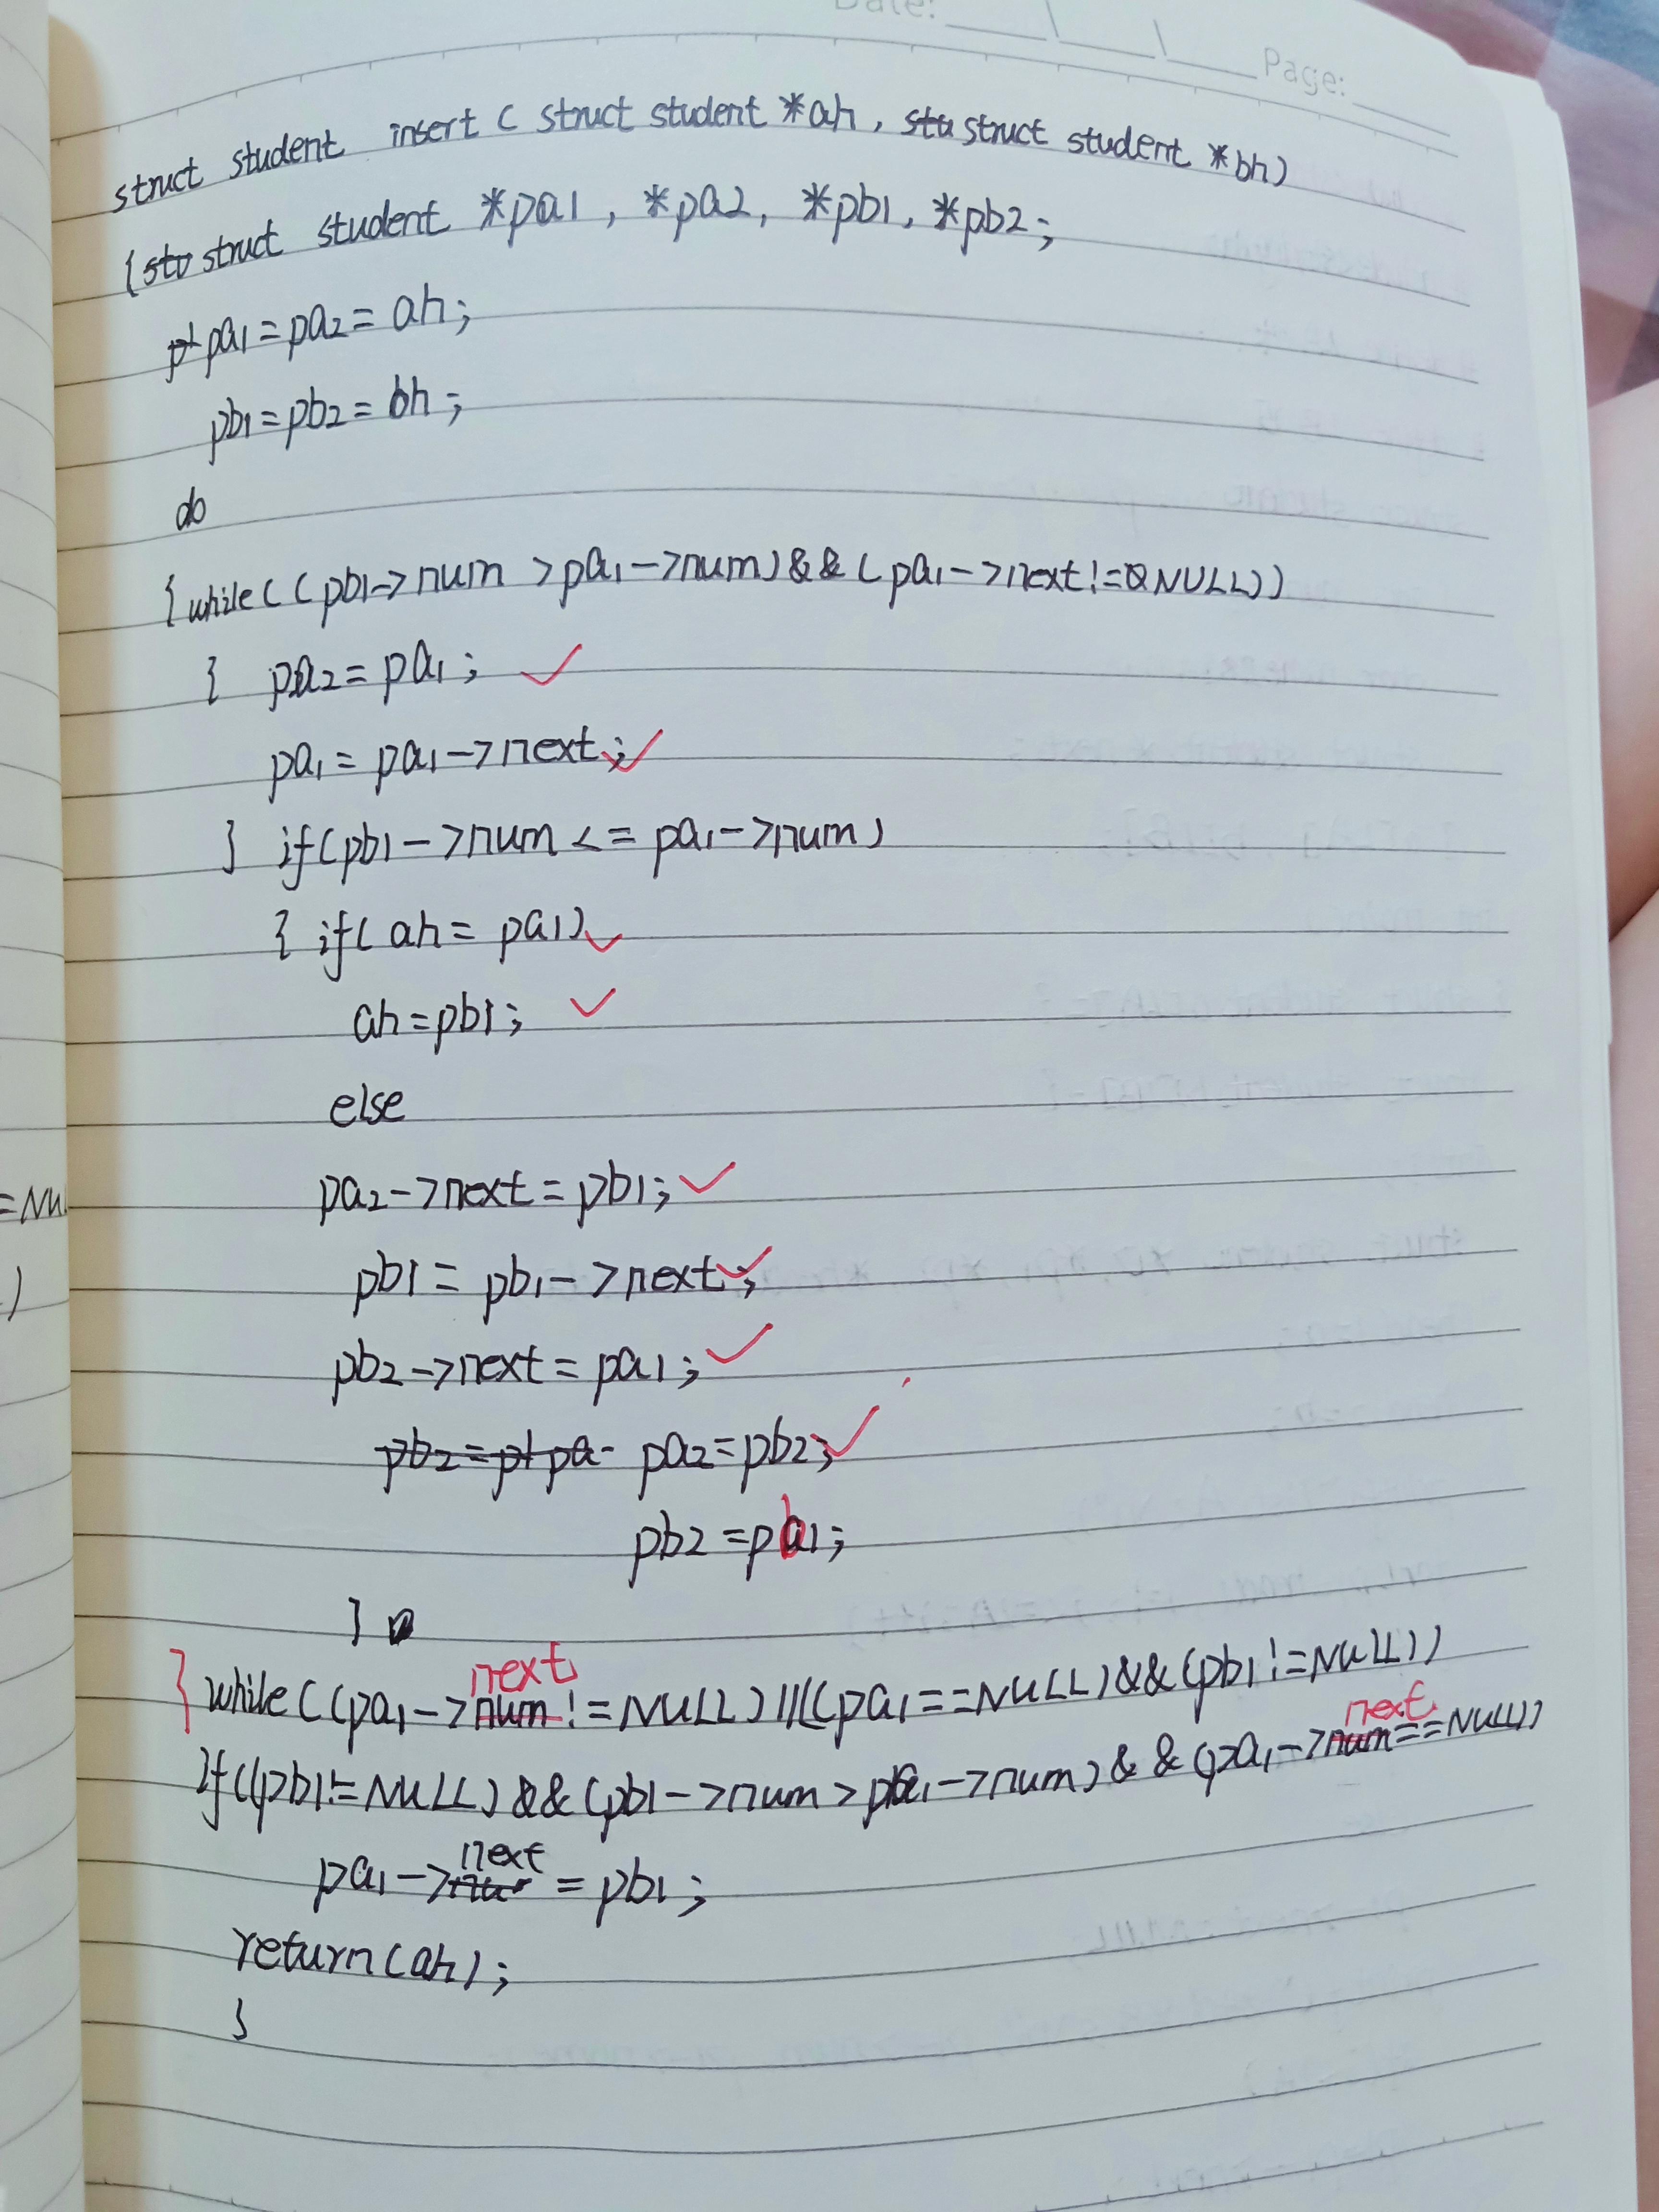 Date: Page:
struct student insert ( struct student *ah, stu struct student *bh)
{stu struct student *pa1, *pa2, *pb1, *pb2;
p1 pa1=pa2=ah;
pb1=pb2=bh;
do
{while((pb1->num >pa1->num)&&(pa1->next!=NULL))
{ pa2=pa1;
pa1=pa1->next;
} if(pb1->num <= pa1->num)
{ if(ah= pa1)
ah=pb1;
else
pa2->next=pb1;
pb1= pb1->next;
pb2->next=pa1;
pb2=p1 pa pa2=pb2;
pb2=pb1;
}
next
} while((pa1->num!=NULL)||((pa1==NULL)&&(pb1!=NULL))
next
if((pb1!=NULL)&&(pb1->num>pa1->num)&&(pa1->num==NULL))
next
pa1-> = pb1;
return(ah);
}
=NU
)